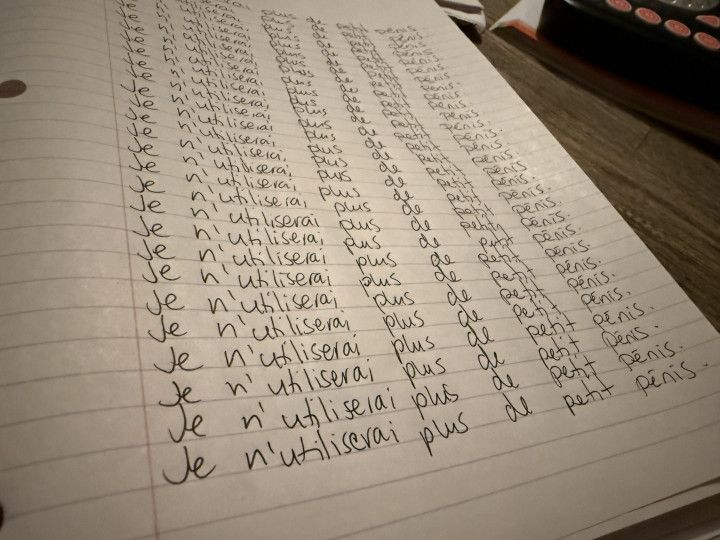 Je n'utiliserai plus de petit pénis.
Je n'utiliserai plus de petit pénis.
Je n'utiliserai plus de petit pénis.
Je n'utiliserai plus de petit pénis.
Je n'utiliserai plus de petit pénis.
Je n'utiliserai plus de petit pénis.
Je n'utiliserai plus de petit pénis.
Je n'utiliserai plus de petit pénis.
Je n'utiliserai plus de petit pénis.
Je n'utiliserai plus de petit pénis.
Je n'utiliserai plus de petit pénis.
Je n'utiliserai plus de petit pénis.
Je n'utiliserai plus de petit pénis.
Je n'utiliserai plus de petit pénis.
Je n'utiliserai plus de petit pénis.
Je n'utiliserai plus de petit pénis.
Je n'utiliserai plus de petit pénis.
Je n'utiliserai plus de petit pénis.
Je n'utiliserai plus de petit pénis.
Je n'utiliserai plus de petit pénis.
Je n'utiliserai plus de petit pénis.